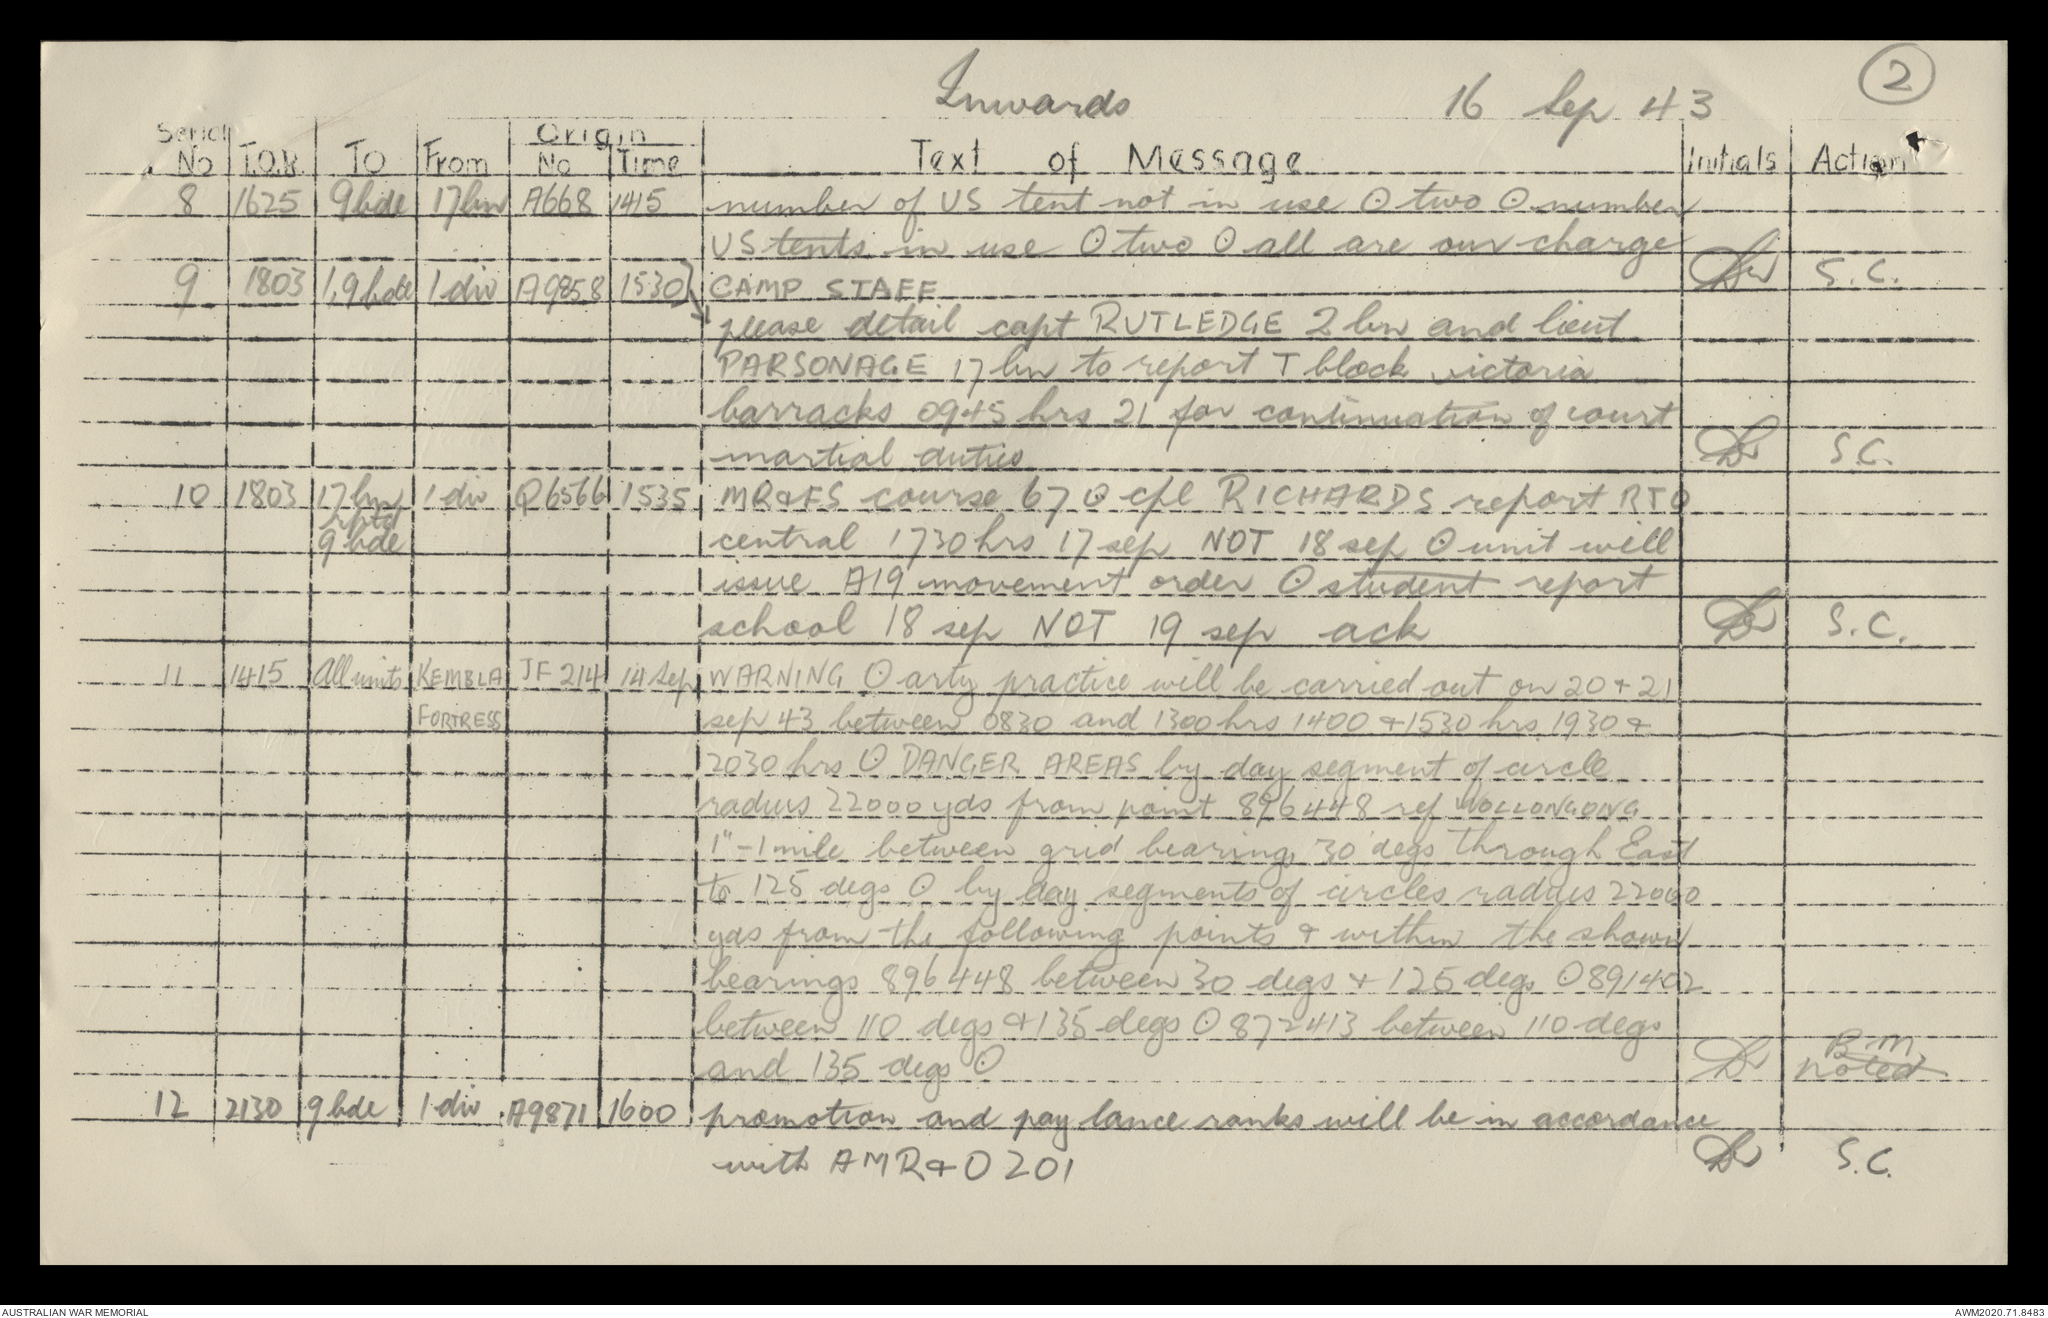 Inwards 16 Sep 43 2
Serial No T.O.R. TO From Origin No Time Text of Message Initials Action
8 1625 9 bde 17 bn A668 1415 number of US tent not in use ⊙ two ⊙ number
US tents in use ⊙ two ⊙ all are our charge S.C.
9 1803 1,9 bde 1 div A9858 1530 CAMP STAFF
please detail capt RUTLEDGE 2 bn and lieut
PARSONAGE 17 bn to report T block victoria
barracks 0945 hrs 21 for continuation of court
martial duties S.C.
10 1803 17 bn 1 div Q6566 1535 MR&FS course 67 ⊙ cpl RICHARDS report RTO
rptd
9 bde central 1730 hrs 17 sep NOT 18 sep ⊙ unit will
issue A19 movement order ⊙ student report
school 18 sep NOT 19 sep ack S.C.
11 1415 All units KEMBLA JF 214 14 Sep WARNING ⊙ arty practice will be carried out on 20 & 21
FORTRESS sep 43 between 0830 and 1300 hrs 1400 & 1530 hrs 1930 &
2030 hrs ⊙ DANGER AREAS by day segment of circle
radius 22000 yds from point 896448 ref WOLLONGONG
1"-1 mile between grid bearings 30 degs through East
to 125 degs ⊙ by day segments of circles radius 22000
yds from the following points & within the shown
bearings 896448 between 30 degs & 125 degs ⊙ 891402
between 110 degs & 135 degs ⊙ 872413 between 110 degs
and 135 degs ⊙ BM noted
12 2130 9 bde 1 div A9871 1600 promotion and pay lance ranks will be in accordance
with AMR&O 201 S.C.
AUSTRALIAN WAR MEMORIAL AWM2020.71.8483